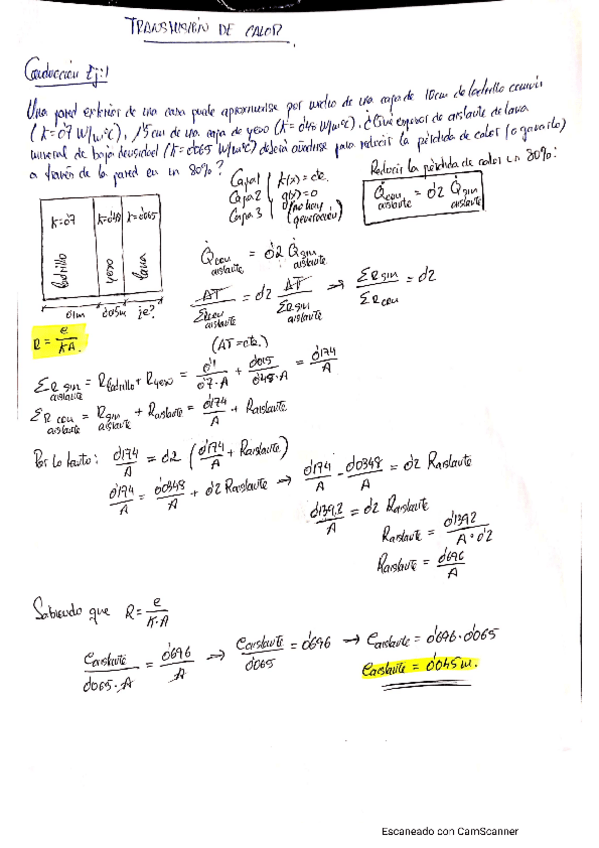 TRANSMISIÓN DE CALOR
Conducción Ej:1
Una pared exterior de una casa puede aproximarse por medio de una capa de 10cm de ladrillo común
(k=0'7 W/mºC), 1'5 cm de una capa de yeso (k=0'48 W/mºC). ¿Qué espesor de aislante de lana
mineral de baja densidad (k=0'065 W/mºC) deberá añadirse para reducir la pérdida de calor (o ganarlo)
a través de la pared en un 80%?
Reducir la pérdida de calor un 80%:
Capa 1
Capa 2
Capa 3
k(x)=cte.
g(x)=0
(no hay generación)
Q̇con aislante = 0'2 Q̇sin aislante
k=0'7 k=0'48 k=0'065
ladrillo yeso lana
0'1m 0'015m ¿e?
Q̇con aislante = 0'2 Q̇sin aislante
ΔT / ΣRcon aislante = 0'2 ΔT / ΣRsin aislante → ΣRsin / ΣRcon = 0'2
(ΔT=cte.)
R = e / kA.
ΣRsin aislante = Rladrillo + Ryeso = 0'1 / 0'7·A + 0'015 / 0'48·A = 0'174 / A
ΣRcon aislante = Rsin aislante + Raislante = 0'174 / A + Raislante
Por lo tanto: 0'174 / A = 0'2 (0'174 / A + Raislante)
0'174 / A = 0'0348 / A + 0'2 Raislante → 0'174 / A - 0'0348 / A = 0'2 Raislante
0'1392 / A = 0'2 Raislante
Raislante = 0'1392 / A·0'2
Raislante = 0'696 / A
Sabiendo que R = e / K·A
eaislante / 0'065·A = 0'696 / A → eaislante / 0'065 = 0'696 → eaislante = 0'696·0'065
eaislante = 0'045m.
Escaneado con CamScanner